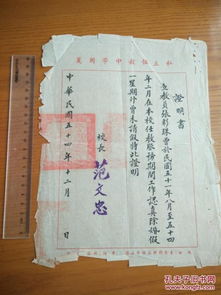 私立伍權中學用箋
證明書
查教員張影珠曾於民國五十一年八月至五十四
年二月在本校任教服務期間工作認真除婚假
一星期外曾未請假特此證明
校長
范文忠
中華民國五十四年十二月 日